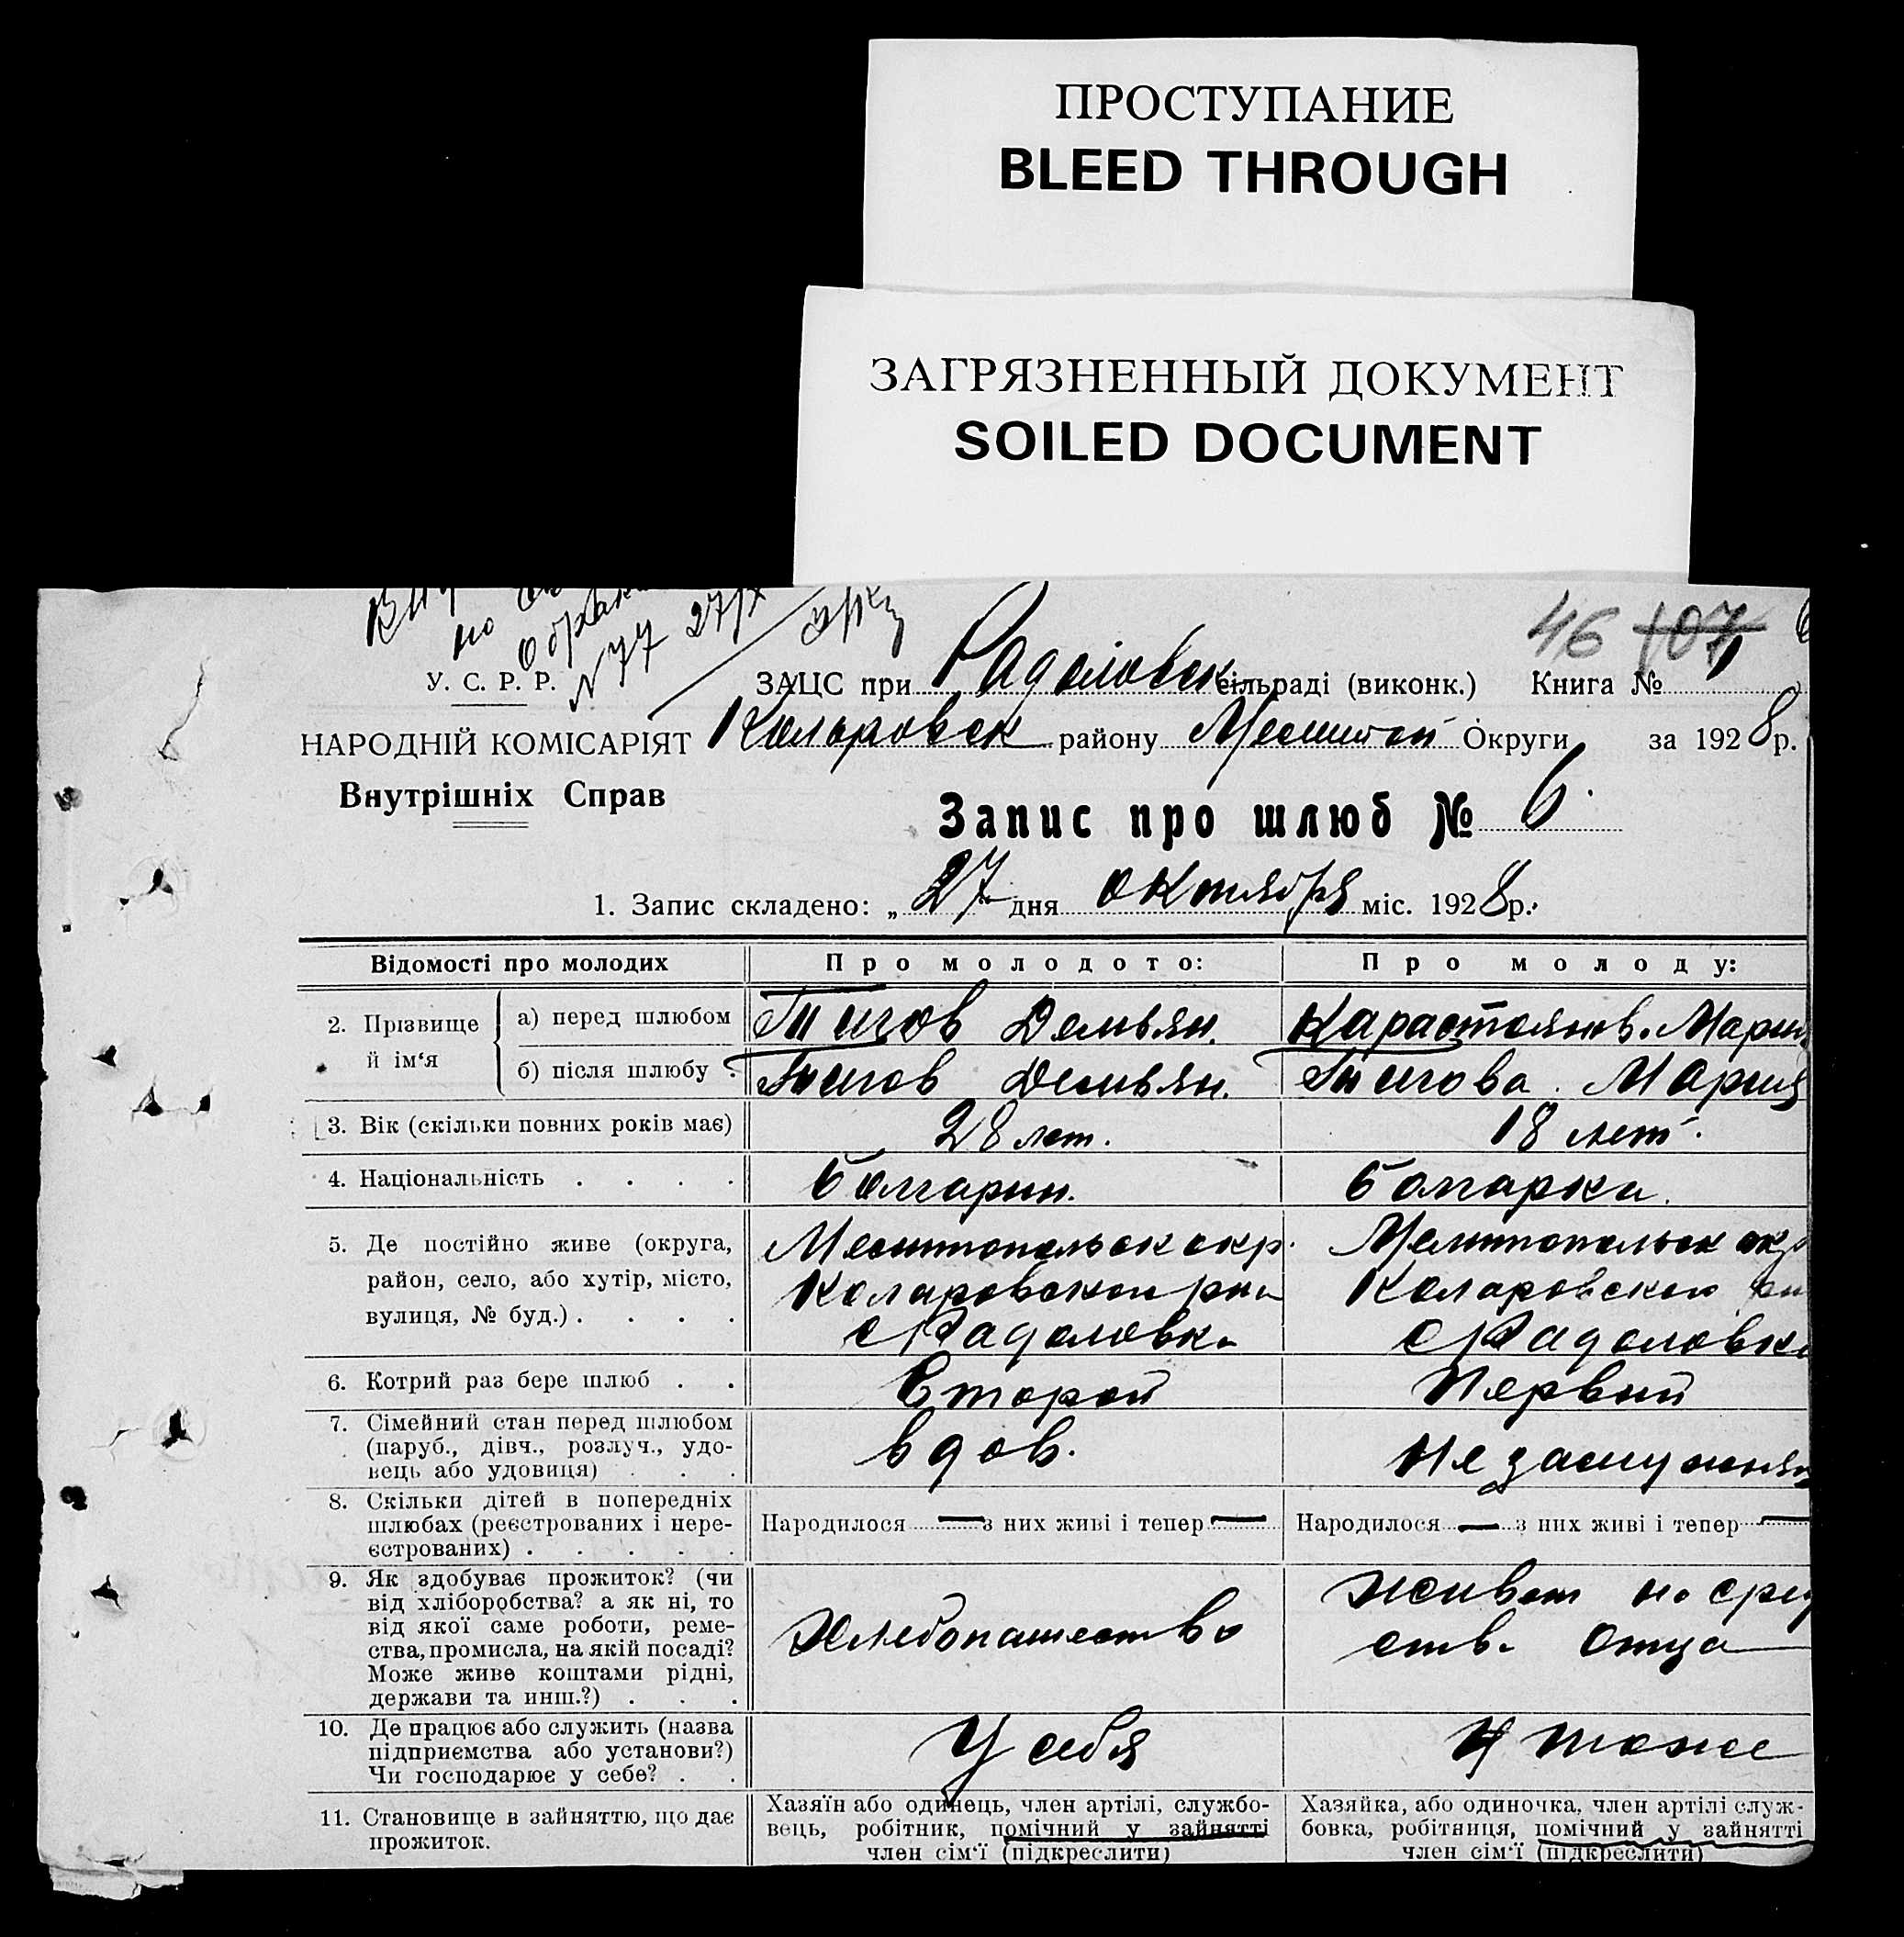 ПРОСТУПАНИЕ
BLEED THROUGH
ЗАГРЯЗНЕННЫЙ ДОКУМЕНТ
SOILED DOCUMENT
46 107
N 77 27/X
У. С. Р. Р.
ЗАЦС при Радоловск сільраді (виконк.) Книга № 1
НАРОДНІЙ КОМІСАРІЯТ
Коларовск району Мелитоп Округи за 1928 р.
Внутрішніх Справ
Запис про шлюб № 6.
1. Запис складено: „ 27 дня октября міс. 1928 р.
Відомості про молодих
Про молодого:
Про молоду:
2. Прізвище й ім‘я
а) перед шлюбом
Тигов Демьян.
Карастоянов. Мария
б) після шлюбу
Тигов Демьян.
Тигова. Мария
3. Вік (скільки повних років має)
28 лет.
18 лет.
4. Національність . . . .
болгарин.
болгарка.
5. Де постійно живе (округа,
район, село, або хутір, місто,
вулиця, № буд.) . . . .
Мелитопольск окр.
Коларовском рна
с Радоловка
Мелитопольск окр
Коларовском рн
с Радоловка
6. Котрий раз бере шлюб . .
Второй
Первый
7. Сімейний стан перед шлюбом
(паруб., дівч., розлуч., удо-
вець або удовиця) . . .
вдов.
Незамужняя
8. Скільки дітей в попередніх
шлюбах (реєстрованих і нере-
єстрованих) . . . . .
Народилося — з них живі і тепер —
Народилося — з них живі і тепер —
9. Як здобуває прожиток? (чи
від хліборобства? а як ні, то
від якої саме роботи, реме-
ства, промисла, на якій посаді?
Може живе коштами рідні,
держави та инш.?) . . .
Хлебопашество
живет на сред
ства отца
10. Де працює або служить (назва
підприємства або установи?)
Чи господарює у себе? . .
У себя
И тоже
11. Становище в зайняттю, що дає
прожиток.
Хазяїн або одинець, член артілі, службо-
вець, робітник, помічний у зайнятті
член сім‘ї (підкреслити)
Хазяйка, або одиночка, член артілі служ-
бовка, робітниця, помічний у зайнятті
член сім‘ї (підкреслити)